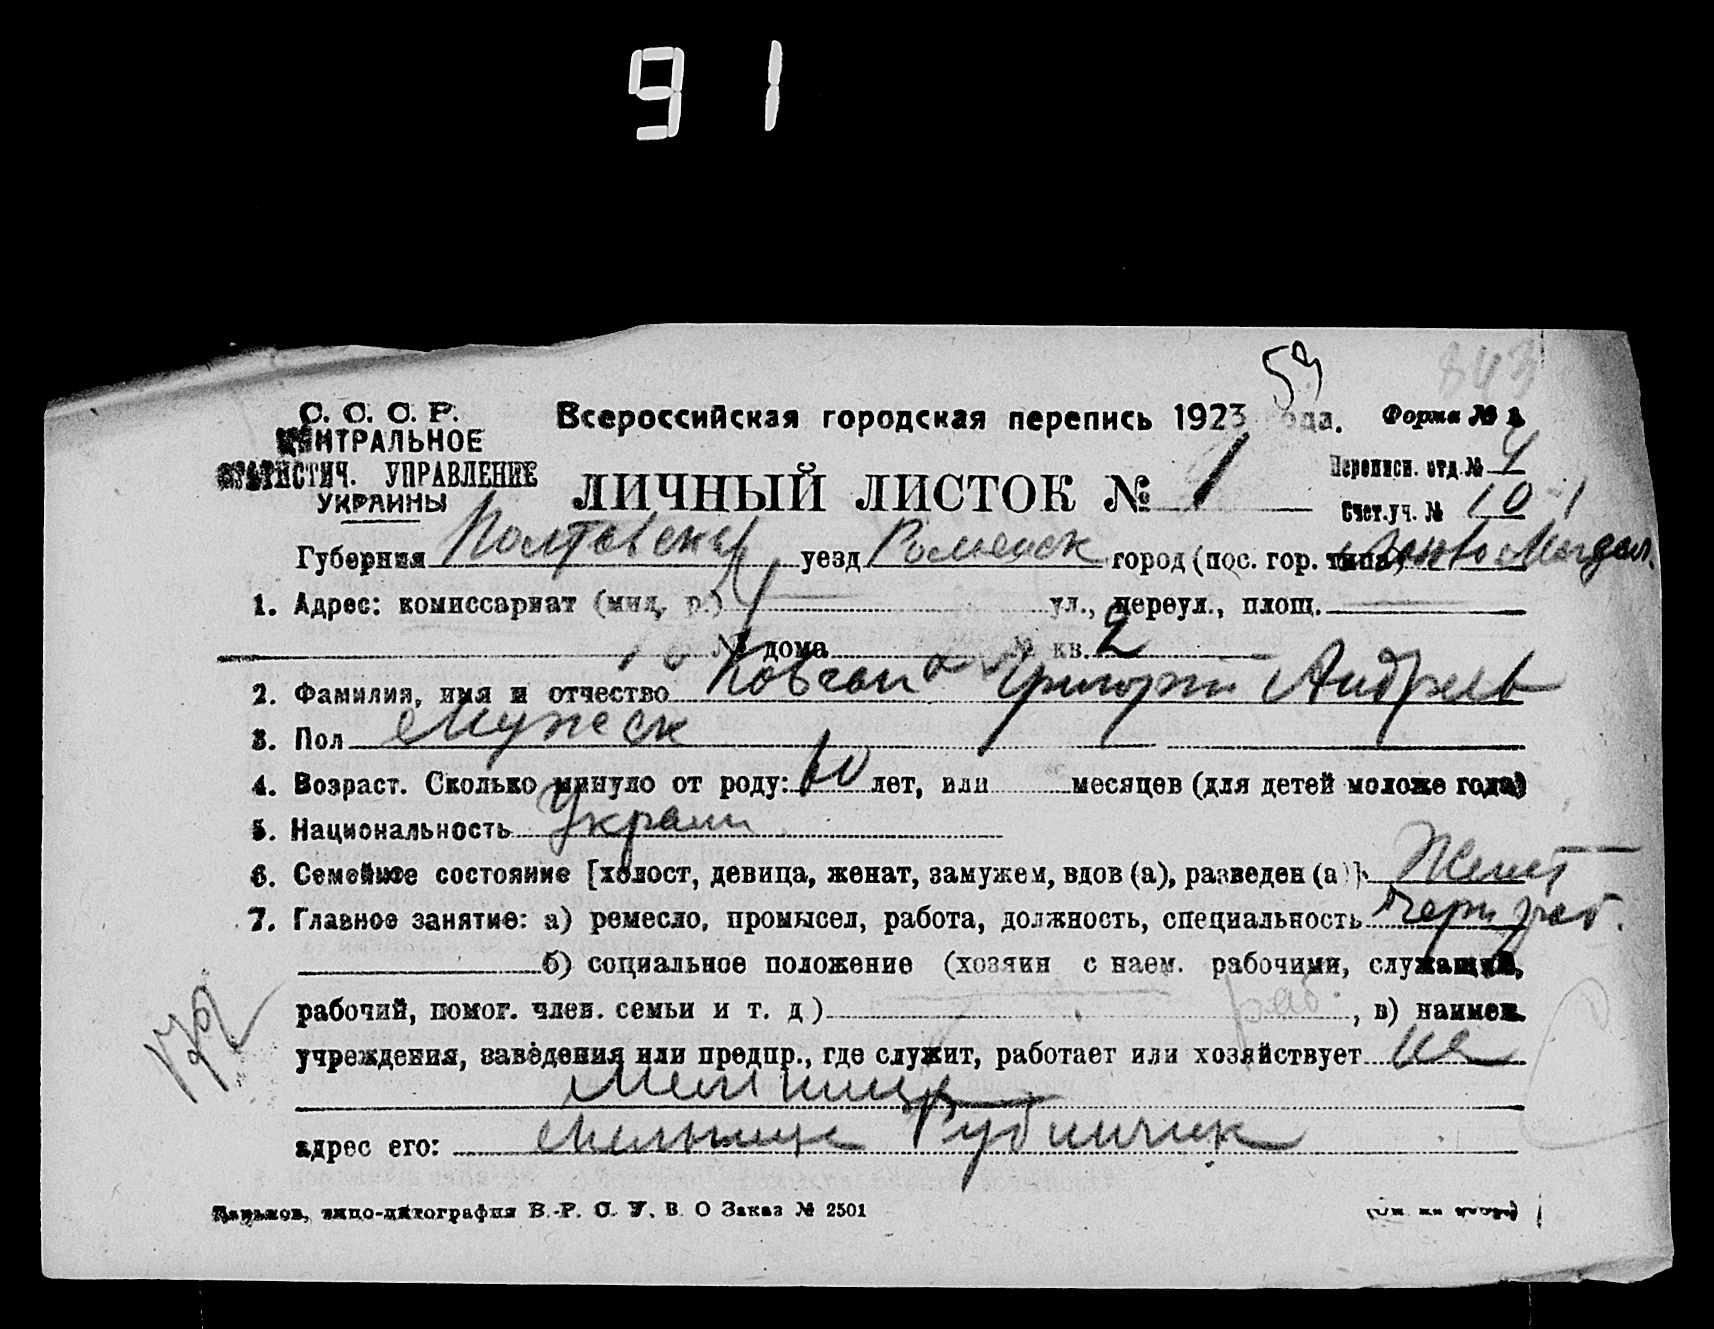 91
59
843
С. С. С. Р.
ЦЕНТРАЛЬНОЕ
СТАТИСТИЧ. УПРАВЛЕНИЕ
УКРАИНЫ
Всероссийская городская перепись 1923 года.
Форма № 1
ЛИЧНЫЙ ЛИСТОК № 1
Переписн. отд. № 4
Счет.уч. № 10-1
Губерния Полтавская уезд Роменск город (пос. гор. типа)
1. Адрес: комиссариат (мил. р.) 4 ул., переул., площ.
№ дома № кв. 2
2. Фамилия, имя и отчество Григорий Андреев
3. Пол Мужеск
4. Возраст. Сколько минуло от роду: 60 лет, или месяцев (для детей моложе года)
5. Национальность Украин
6. Семейное состояние [холост, девица, женат, замужем, вдов (а), разведен (а)]. Женат
7. Главное занятие: а) ремесло, промысел, работа, должность, специальность Черн раб.
б) социальное положение (хозяин с наем. рабочими, служащий,
рабочий, помог. член. семьи и т. д) раб. , в) наимен.
учреждения, заведения или предпр., где служит, работает или хозяйствует на
Мельнице
адрес его: Мельница Рубинчик
Харьков, типо-литография В.-Р. С. У. В. О Заказ № 2501